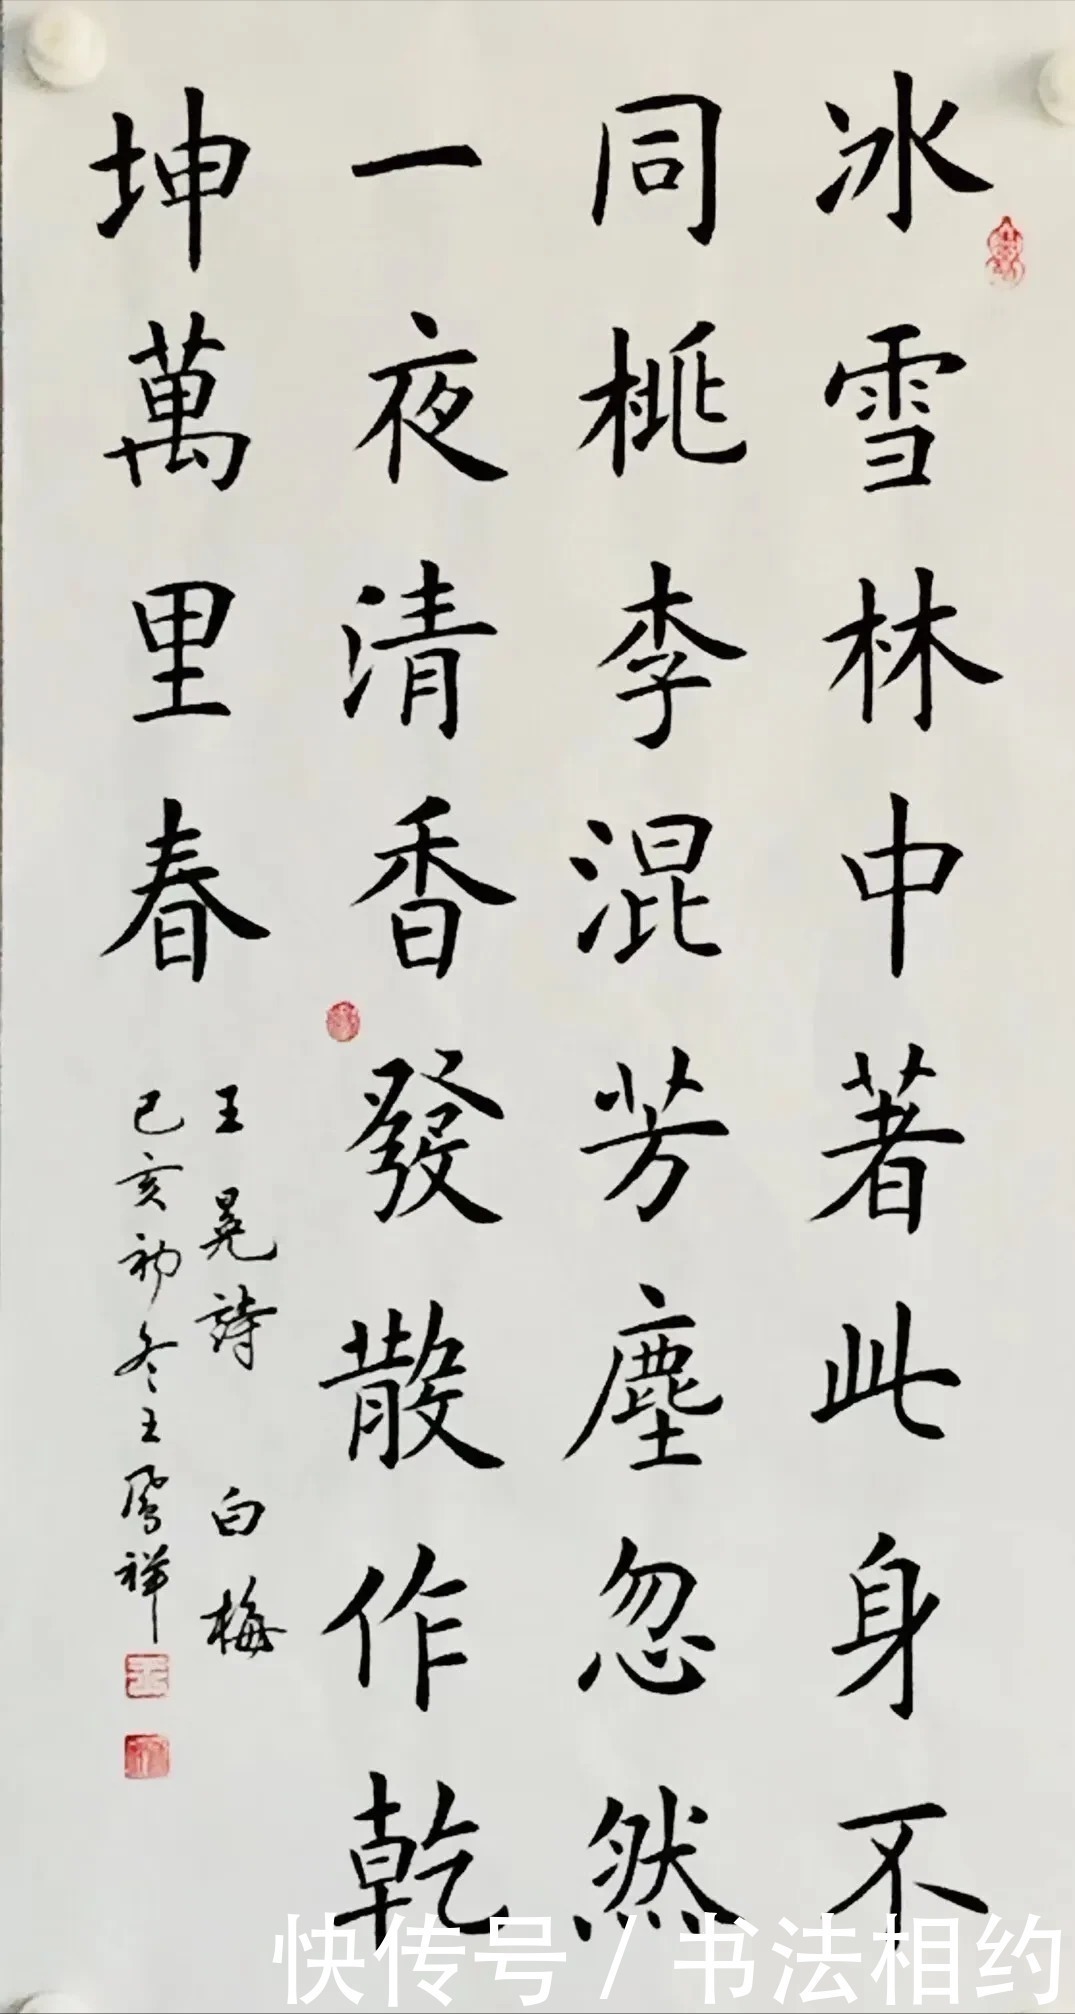 冰雪林中著此身不
同桃李混芳塵忽然
一夜清香發散作乾
坤萬里春
王冕詩 白梅
己亥初冬王鳳祥
快传号/书法相约